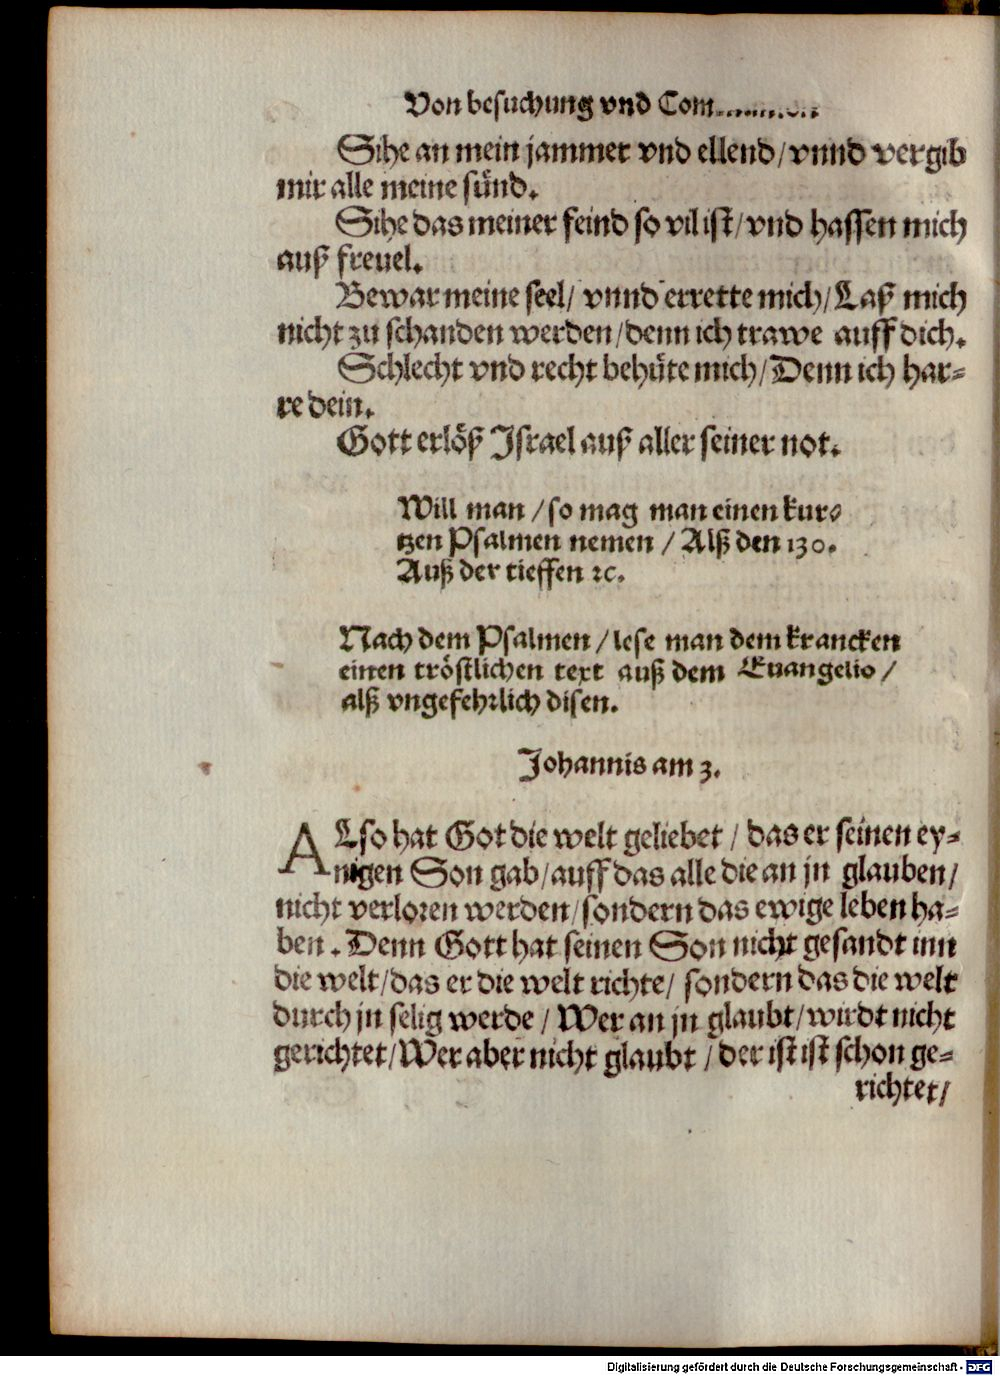 Von besuchung vnd
Sihe an mein jammer vnd ellend/vnnd vergib
mir alle meine sünd.
Sihe das meiner feind so vil ist/vnd hassen mich
auß freuel.
Bewar meine seel/ vnnd errette mich/Laß mich
nicht zu schanden werden/denn ich trawe auff dich.
Schlecht vnd recht behüte mich/Denn ich har-
re dein.
Gott erlöß Israel auß aller seiner not.
Will man /so mag man einen kur-
tzen Psalmen nemen / Alß den 130.
Auß der tieffen ꝛc.
Nach dem Psalmen /lese man dem krancken
einen tröstlichen text auß dem Euangelio /
alß vngefehrlich disen.
Johannis am 3.
ALso hat Got die welt geliebet / das er seinen ey-
nigen Son gab/auff das alle die an jn glauben/
nicht verloren werden/sondern das ewige leben ha-
ben. Denn Gott hat seinen Son nicht gesandt inn
die welt/das er die welt richte/ sondern das die welt
durch jn selig werde / Wer an jn glaubt/wirdt nicht
gerichtet/Wer aber nicht glaubt /der ist ist schon ge-
richtet/
Digitalisierung gefördert durch die Deutsche Forschungsgemeinschaft - DFG